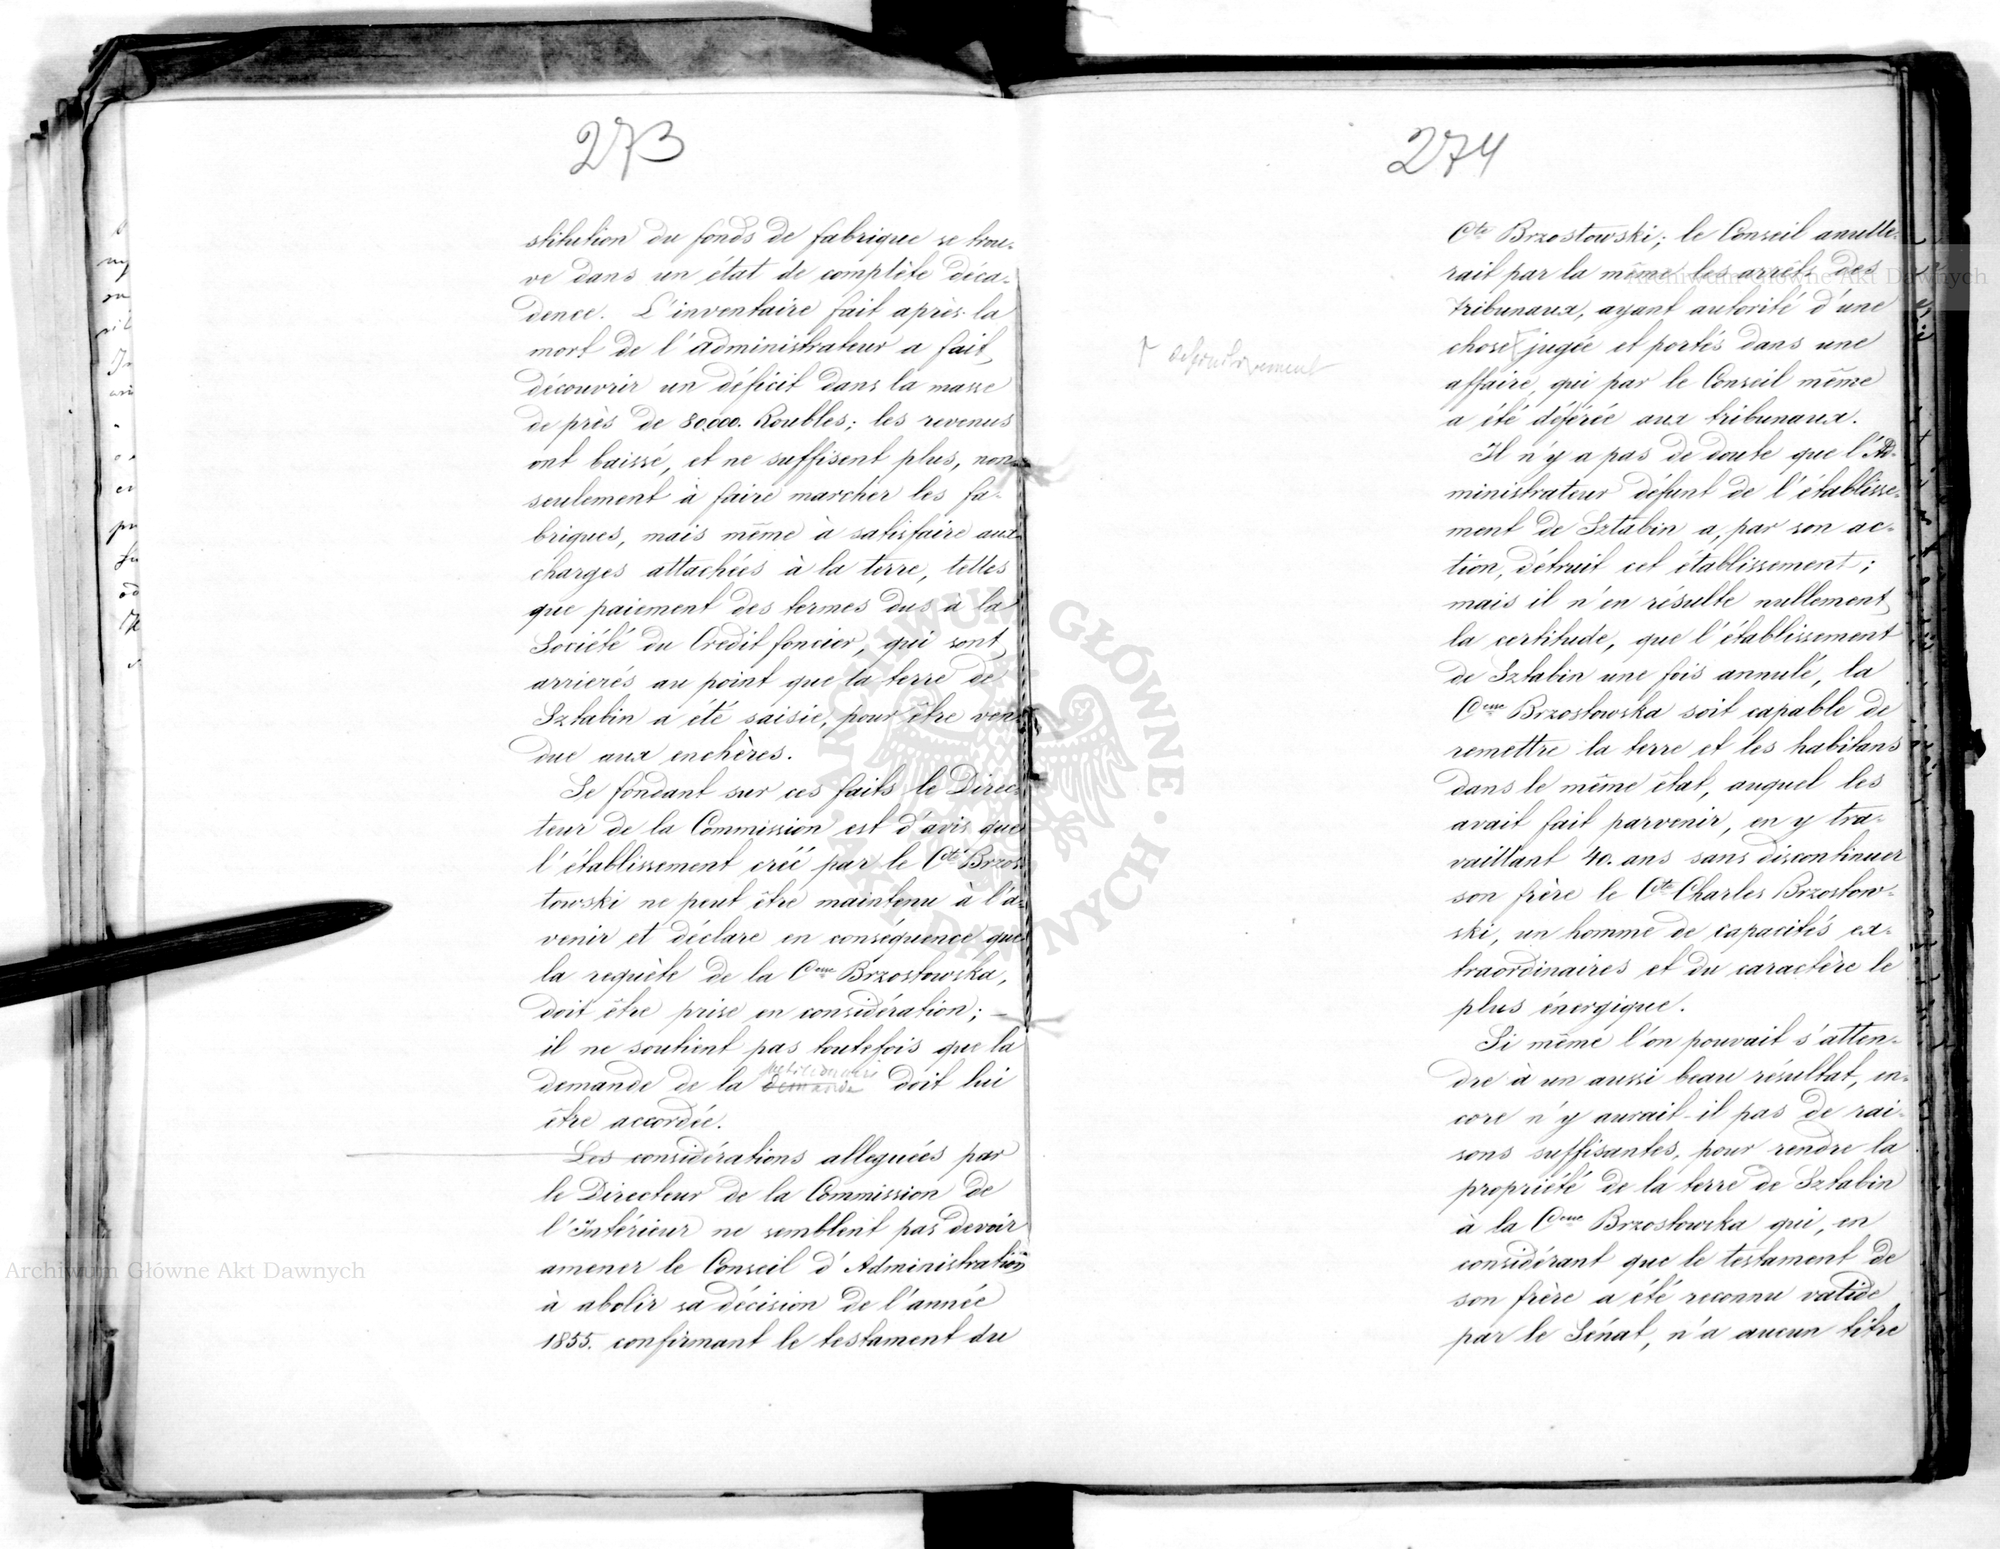 273
stitution du fonds de fabrique se trou-
ve dans un état de complète déca-
dence. L'inventaire fait après la
mort de l'administrateur a fait
découvrir un déficit dans la masse
de près de 80,000. Roubles; les revenus
ont baissé, et ne suffisent plus, non
seulement à faire marcher les fa-
briques, mais même à satisfaire aux
charges attachées à la terre, telles
que paiement des termes dus à la
Société du Credit foncier, qui sont
arrierés au point que la terre de
Sztabin a été saisie, pour être ven-
due aux enchères.
Se fondant sur ces faits le Direc-
teur de la Commission est d'avis que
l'établissement créé par le Cte Brzos-
towski ne peut être maintenu à l'a-
venir et déclare en conséquence que
la requête de la Csse Brzostowska,
doit être prise en considération; —
il ne soutient pas toutefois que la
demande de la petitionnaire doit lui
être accordée.
Les considérations alleguées par
le Directeur de la Commission de
l'Intérieur ne semblent pas devoir
amener le Conseil d'Administration
à abolir sa décision de l'année
1855. confirmant le testament du
274
Cte Brzostowski; le Conseil anulle-
rait par la même les arrêts des
tribunaux, ayant autorité d'une
chose jugée et portés dans une
affaire, qui par le Conseil même
a été déférée aux tribunaux.
Il n'y a pas de doute que l'Ad-
ministrateur defunt de l'établisse-
ment de Sztabin a, par son ac-
tion, détruit cet établissement;
mais il n'en résulte nullement
la certitude, que l'établissement
de Sztabin une fois annulé, la
Csse Brzostowska soit capable de
remettre la terre et les habitans
dans le même état, auquel les
avait fait parvenir, en y tra-
vaillant 40. ans sans discontinuer
son frère le Cte Charles Brzostow-
ski, un homme de capacités ex-
traordinaires et du caractère le
plus énergique.
Si même l'on pouvait s'atten-
dre à un aussi beau résultat, en-
core n'y aurait-il pas de rai-
sons suffisantes, pour rendre la
propriété de la terre de Sztabin
à la Csse Brzostowska qui, en
considérant que le testament de
son frère a été reconnu valide
par le Sénat, n'a aucun titre
Archiwum Główne Akt Dawnych
Archiwum Główne Akt Dawnych
ARCHIWUM GŁÓWNE AKT DAWNYCH